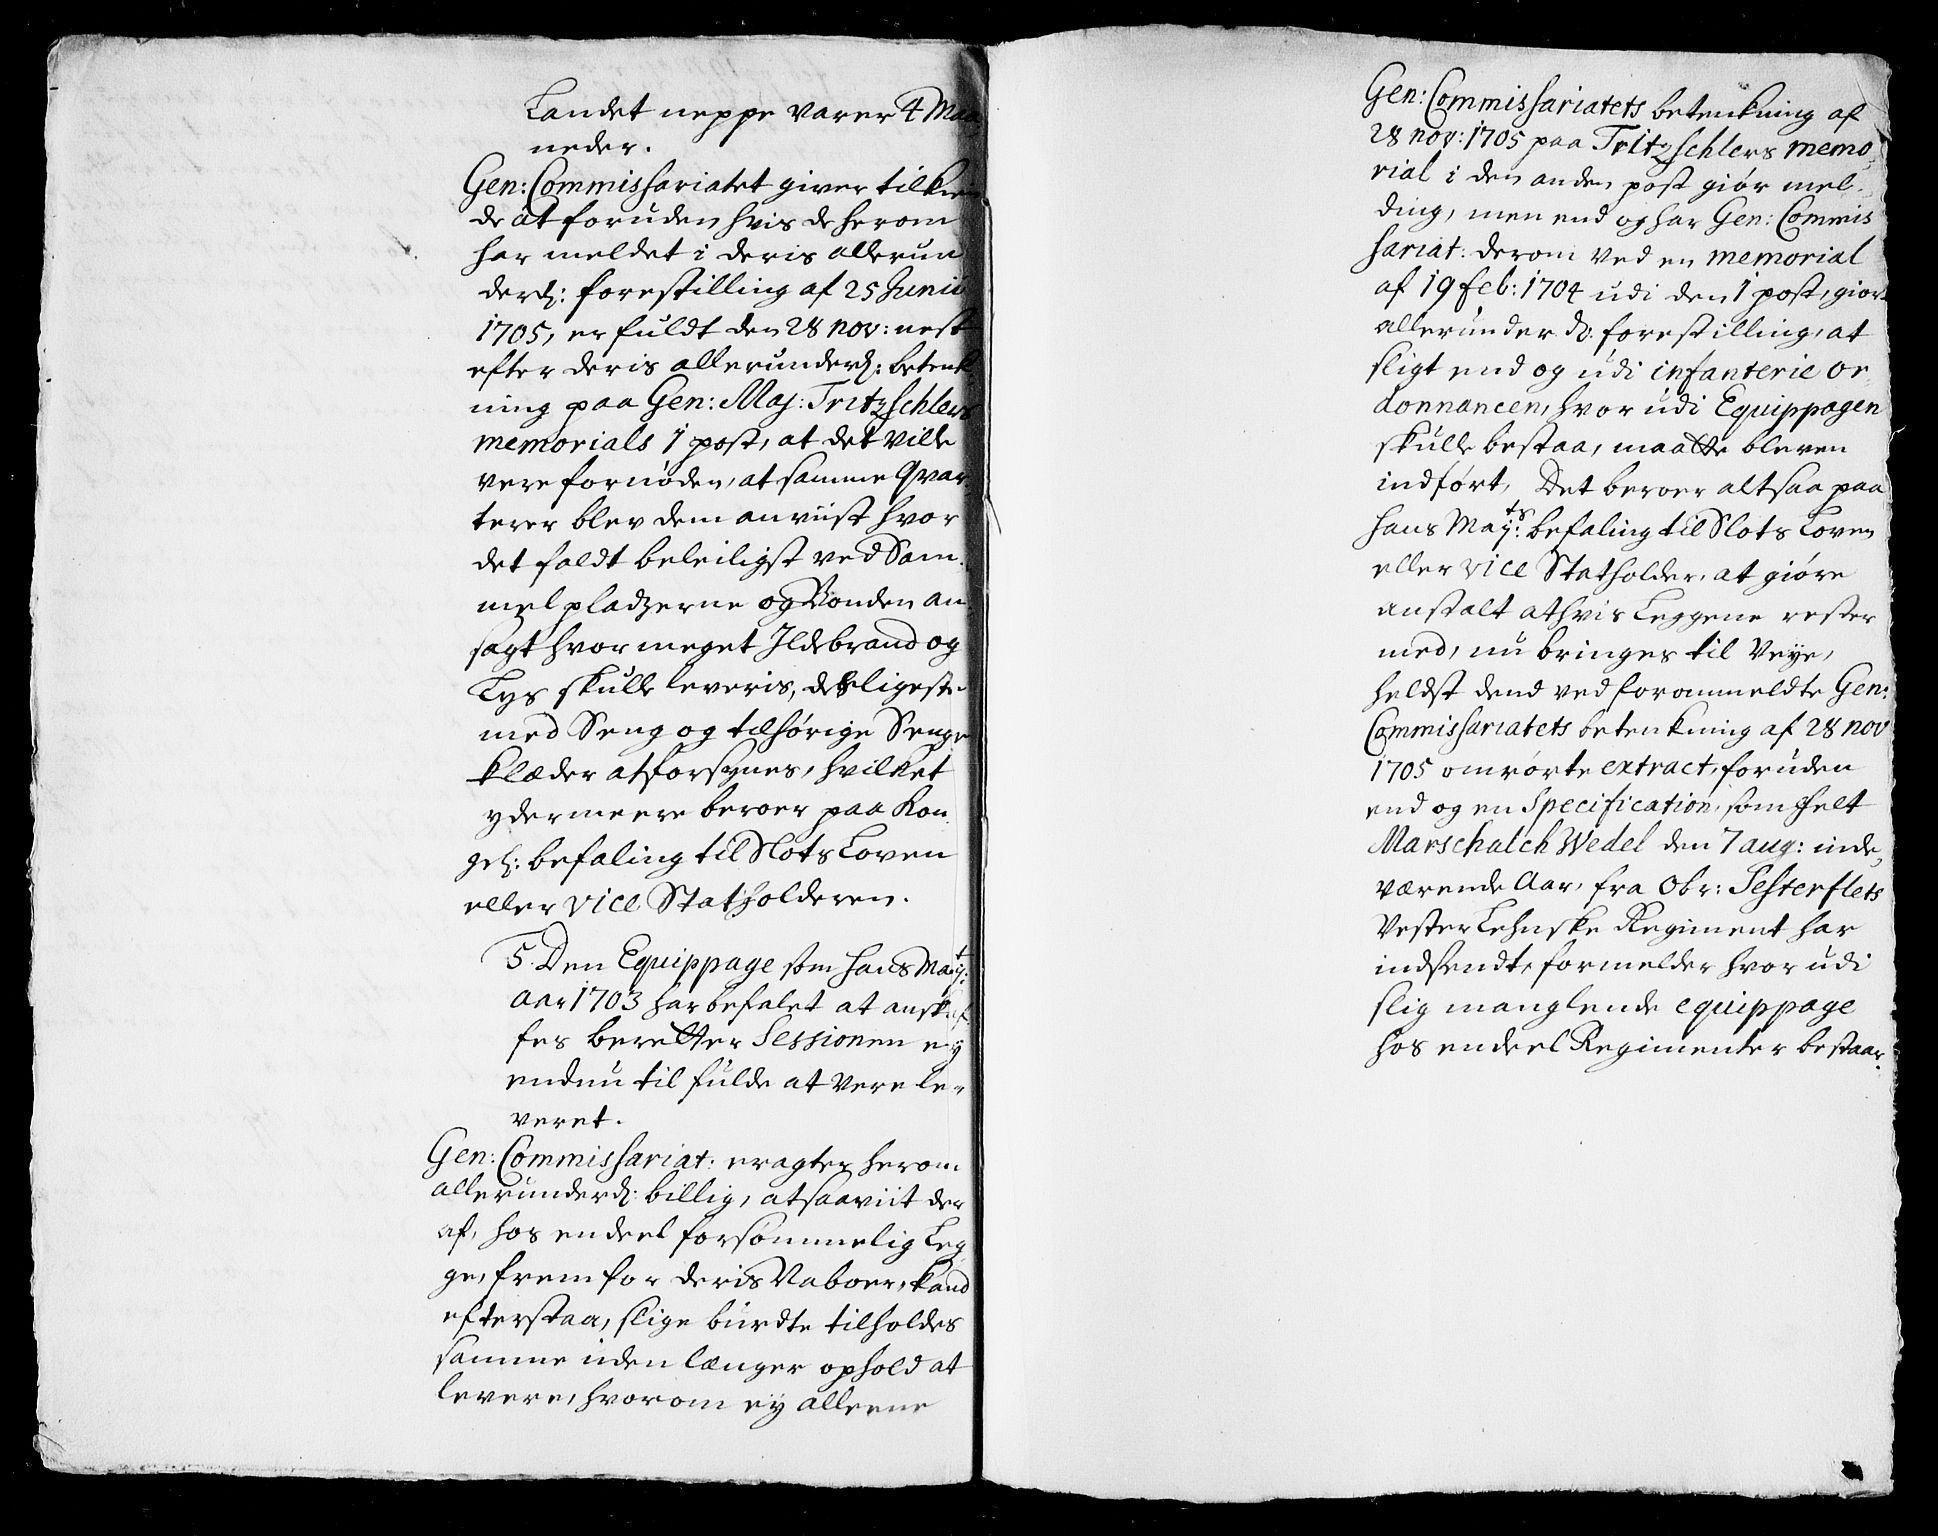 Landet neppe varer 4 Maa
neder.
Gen: Commissariatet giver tilkien
de at foruden hvis de herom
har meldet i deris allerun
derd: forestilling af 25 Junii
1705, er fuldt den 28 nov: nest
efter deris allerunderd: betenk
ning paa Gen: Maj: Tritzschlers
memorials 1 post, at det ville
vere fornøden, at samme Qvar
terer blev dem anviist hvor
det faldt beleiligst ved Sam
melpladzerne og Bonden an
sagt hvor meget Ildebrand og
Lys skulle leveris, desligeste
med Seng og tilhørige Senge
klæder at forsynes, hvilket
ydermeere beroer paa Kon
gel: befaling til Slots Loven
eller vice Statholderen.
5. Den Equippage som hans Maj:t
Aar 1703 har befalet at anskaf
fes beretter Sessionen ey
endnu til fulde at vere le-
veret.
Gen: Commissariat: eragter herom
allerunderd: billig, at saaviit der
af, hos en deel forsømmelig Leg
ge, frem for deris Naboer, kand
efterstaa, slige burdte tilholdes
samme uden længer ophold at
levere, hvorom ey alleene
Gen: Commissariatets betenkning af
28 nov: 1705 paa Tritzschlers memo
rial i den anden post giør mel-
ding, men end og har Gen: Commis
sariat: derom ved en memorial
af 19 feb: 1704 udi den 1 post, giort
allerunderd: forestilling, at
sligt end og udi infanterie or
donnancen, hvorudi Equippagen
skulle bestaa, maatte bleven
indført, Det beroer altsaa paa
hans Maj:ts befaling til Slots Loven
eller vice Statholder, at giøre
anstalt at hvis Leggene rester
med, nu bringes til Veye,
heldst dend ved forommeldte Gen:
Commissariatets betenkning af 28 nov
1705 omrørte extract, foruden
end og en Specification, som Felt
Marschalch Wedel den 7 aug: inde
værende Aar, fra Obr: Sesterflets
Vester Lehnske Regiment har
indsendt, formelder hvorudi
slig manglende equippage
hos en deel Regimenter bestaar.